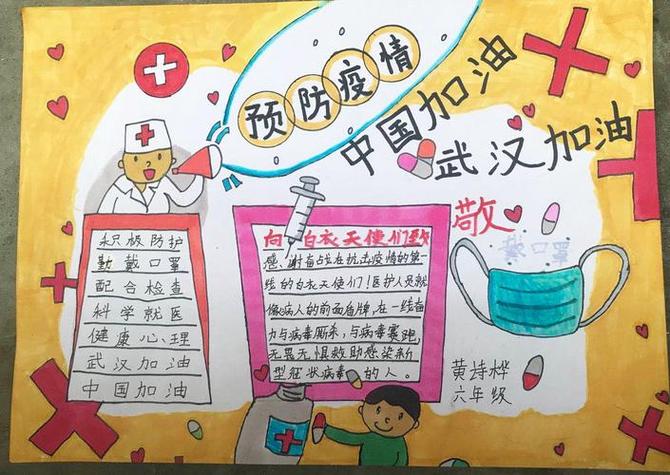 预防疫情
中国加油
武汉加油
积极防护
勤戴口罩
配合检查
科学就医
健康心理
武汉加油
中国加油
向白衣天使们致
敬
感谢奋战在抗击疫情的第一
线的白衣天使们！医护人员就
像病人的前面盾牌，在一线奋
力与病毒厮杀，与病毒赛跑，
无畏无惧救助感染新
型冠状病毒的人。
戴口罩
黄诗桦
六年级